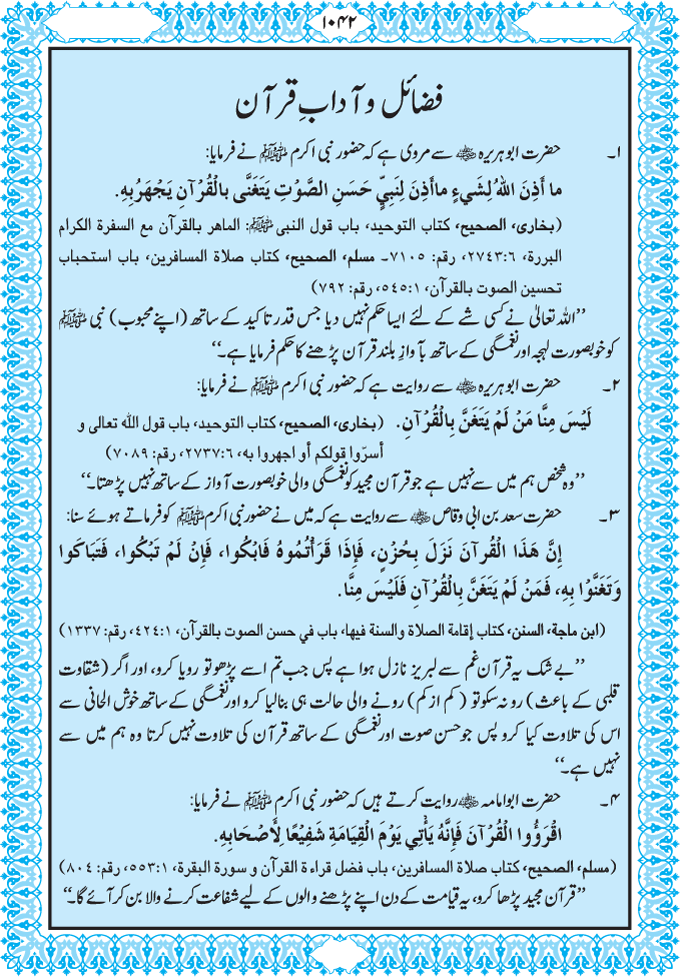 ۱۰۴۲
فضائل و آدابِ قرآن
۱۔ حضرت ابو ہریرہ ﷛ سے مروی ہے کہ حضور نبی اکرم ﷺ نے فرمایا:
ما أَذِنَ اللهُ لِشَيءٍ ماأَذِنَ لِنَبِيٍّ حَسَنِ الصَّوْتِ يَتَغَنَّى بالْقُرْآنِ يَجْهَرُ بِهِ.
(بخاری، الصحیح، کتاب التوحید، باب قول النبی ﷺ: الماهر بالقرآن مع السفرة الكرام
البررة، ۶:۲۷۴۳، رقم: ۷۱۰۵۔ مسلم، الصحیح، کتاب صلاة المسافرین، باب استحباب
تحسین الصوت بالقرآن، ۱:۵۴۵، رقم: ۷۹۲)
’’اللہ تعالیٰ نے کسی شے کے لئے ایسا حکم نہیں دیا جس قدر تاکید کے ساتھ (اپنے محبوب) نبی ﷺ
کو خوبصورت لہجہ اور نغمگی کے ساتھ بآوازِ بلند قرآن پڑھنے کا حکم فرمایا ہے۔‘‘
۲۔ حضرت ابو ہریرہ ﷛ سے روایت ہے کہ حضور نبی اکرم ﷺ نے فرمایا:
لَيْسَ مِنَّا مَنْ لَمْ يَتَغَنَّ بِالْقُرْآنِ. (بخاری، الصحیح، کتاب التوحید، باب قول الله تعالی و
أسرّوا قولكم أو اجهروا به، ۶:۲۷۳۷، رقم: ۷۰۸۹)
’’وہ شخص ہم میں سے نہیں ہے جو قرآن مجید کو نغمگی والی خوبصورت آواز کے ساتھ نہیں پڑھتا۔‘‘
۳۔ حضرت سعد بن ابی وقاص ﷛ سے روایت ہے کہ میں نے حضور نبی اکرم ﷺ کو فرماتے ہوئے سنا:
إِنَّ هَذَا الْقُرآنَ نَزَلَ بِحُزْنٍ، فَإِذَا قَرَأْتُمُوهُ فَابْكُوا، فَإِنْ لَمْ تَبْكُوا، فَتَبَاكَوا
وَتَغَنَّوْا بِهِ، فَمَنْ لَمْ يَتَغَنَّ بِالْقُرْآنِ فَلَيْسَ مِنَّا.
(ابن ماجة، السنن، كتاب إقامة الصلاة والسنة فيها، باب في حسن الصوت بالقرآن، ۱:۴۲۴، رقم: ۱۳۳۷)
’’بے شک یہ قرآن غم سے لبریز نازل ہوا ہے پس جب تم اسے پڑھو تو رویا کرو، اور اگر (شقاوت
قلبی کے باعث) رو نہ سکو تو (کم از کم) رونے والی حالت ہی بنا لیا کرو اور نغمگی کے ساتھ خوش الحانی سے
اس کی تلاوت کیا کرو پس جو حسن صوت اور نغمگی کے ساتھ قرآن کی تلاوت نہیں کرتا وہ ہم میں سے
نہیں ہے۔‘‘
۴۔ حضرت ابوامامہ ﷛ روایت کرتے ہیں کہ حضور نبی اکرم ﷺ نے فرمایا:
اقْرَؤُوا الْقُرْآنَ فَإِنَّهُ يَأْتِي يَوْمَ الْقِيَامَةِ شَفِيْعًا لِأَصْحَابِهِ.
(مسلم، الصحیح، کتاب صلاة المسافرین، باب فضل قراءة القرآن و سورة البقرة، ۱:۵۵۳، رقم: ۸۰۴)
’’قرآن مجید پڑھا کرو، یہ قیامت کے دن اپنے پڑھنے والوں کے لیے شفاعت کرنے والا بن کر آئے گا۔‘‘